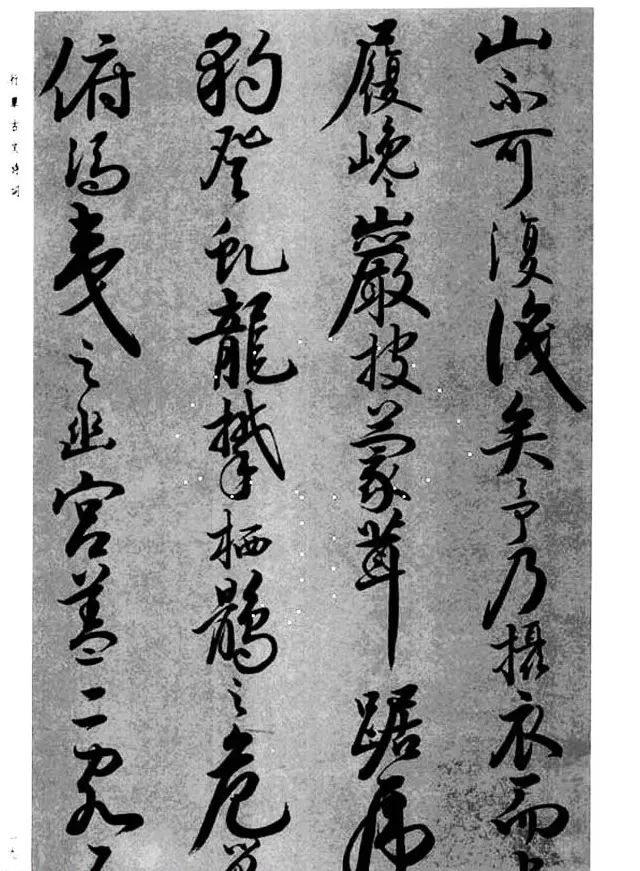 山不可復識矣予乃攝衣而
履巉巖披蒙茸踞虎
豹登虬龍攀栖鶻之危
俯馮夷之幽宮蓋二客
行草古文诗词
一九